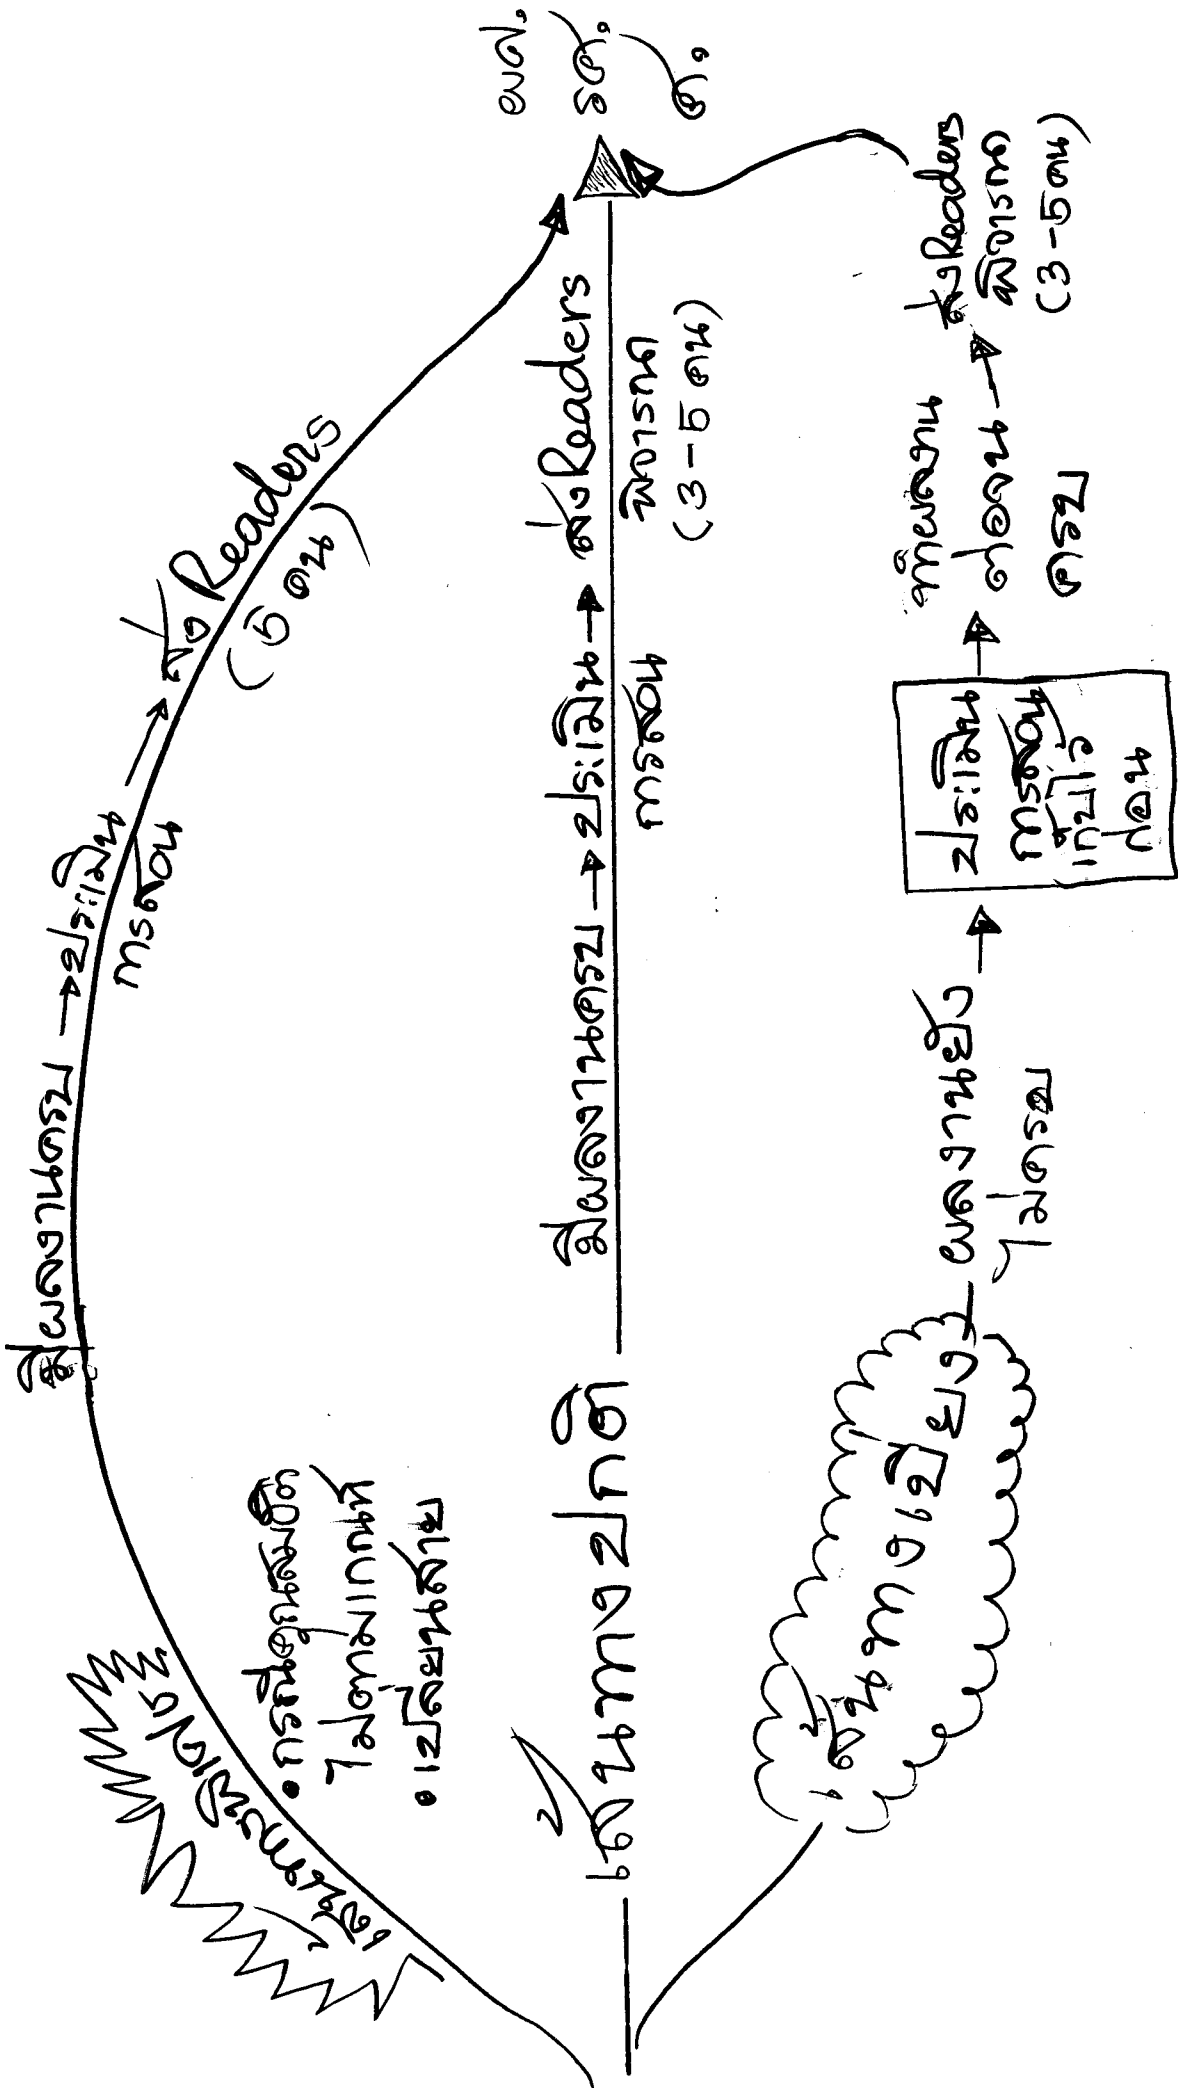 เส้นทางพิเศษ
• กรณีคุณสมบัติ
ไม่ตามเกณฑ์
• เปลี่ยนสาย
มีผลงานครบ → ประเมิน → ส่ง Readers
การสอน
(5 คน)
เส้นทางปกติ
มีผลงานครบ → ประเมิน → ส่ง Readers
การสอน
พิจารณา
(3-5 คน)
ผศ.
รศ.
ศ.
เส้นทางเบี่ยง
ผลงานยัง
ไม่ครบ
ประเมิน
การสอน
เก็บไว้
ก่อน
ทำผลงาน
ต่อจน
ครบ
ส่ง Readers
พิจารณา
(3-5 คน)